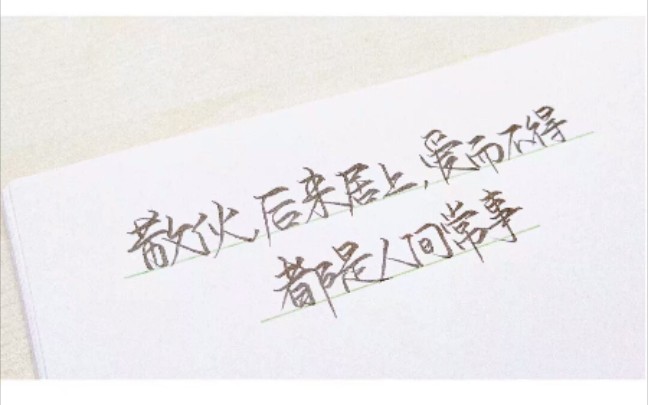 散伙,后来居上,爱而不得
都是人间常事